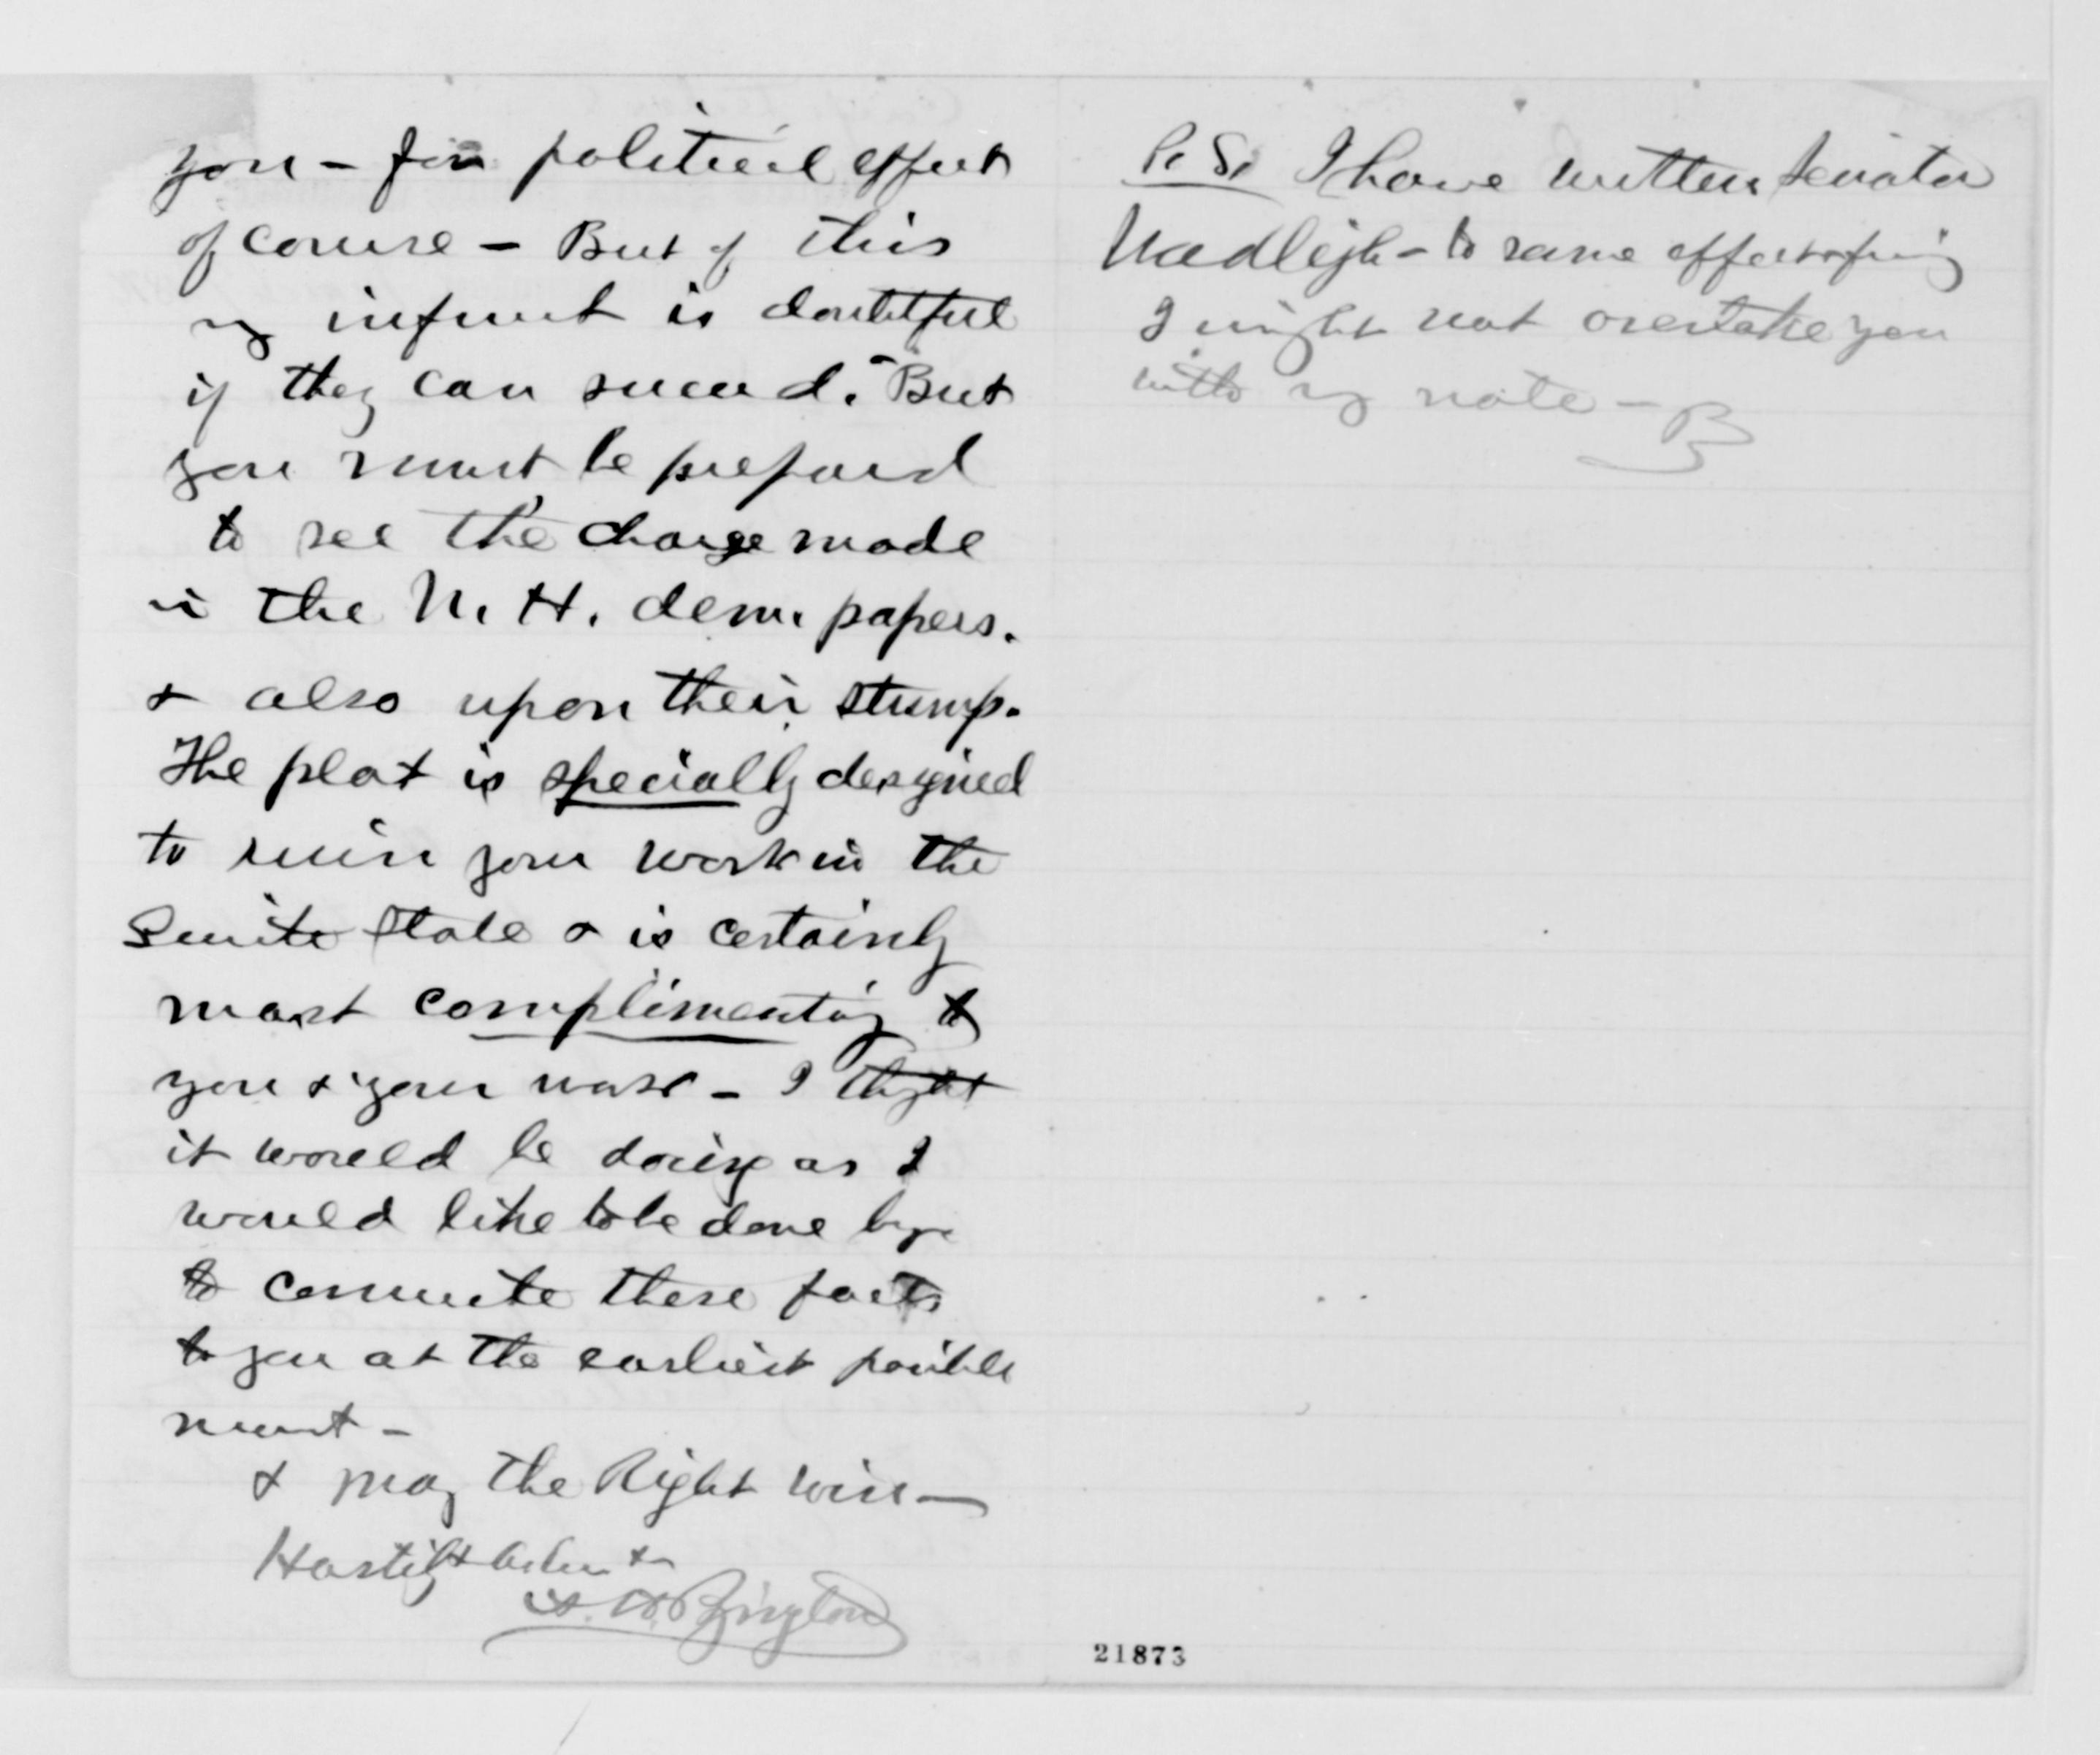 you - for political effect
of course - But of this
my infmnt is doubtful
if they can succeed. But
you must be prepared
to see the charge made
in the N. H. dem. papers.
& also upon their stump.
The plot is specially designed
to ruin your work in the
State & is certainly
most complimentary to
you & your work - I thght
it would be doing as I
would like to be done by
to commcte these facts
to you at the earliest possible
mmnt -
& may the Right win -
Hastily &
A. H. Byington
P. S. I have written Senator
Wadleigh - to same effect
I might not overtake you
with my note - B
21873